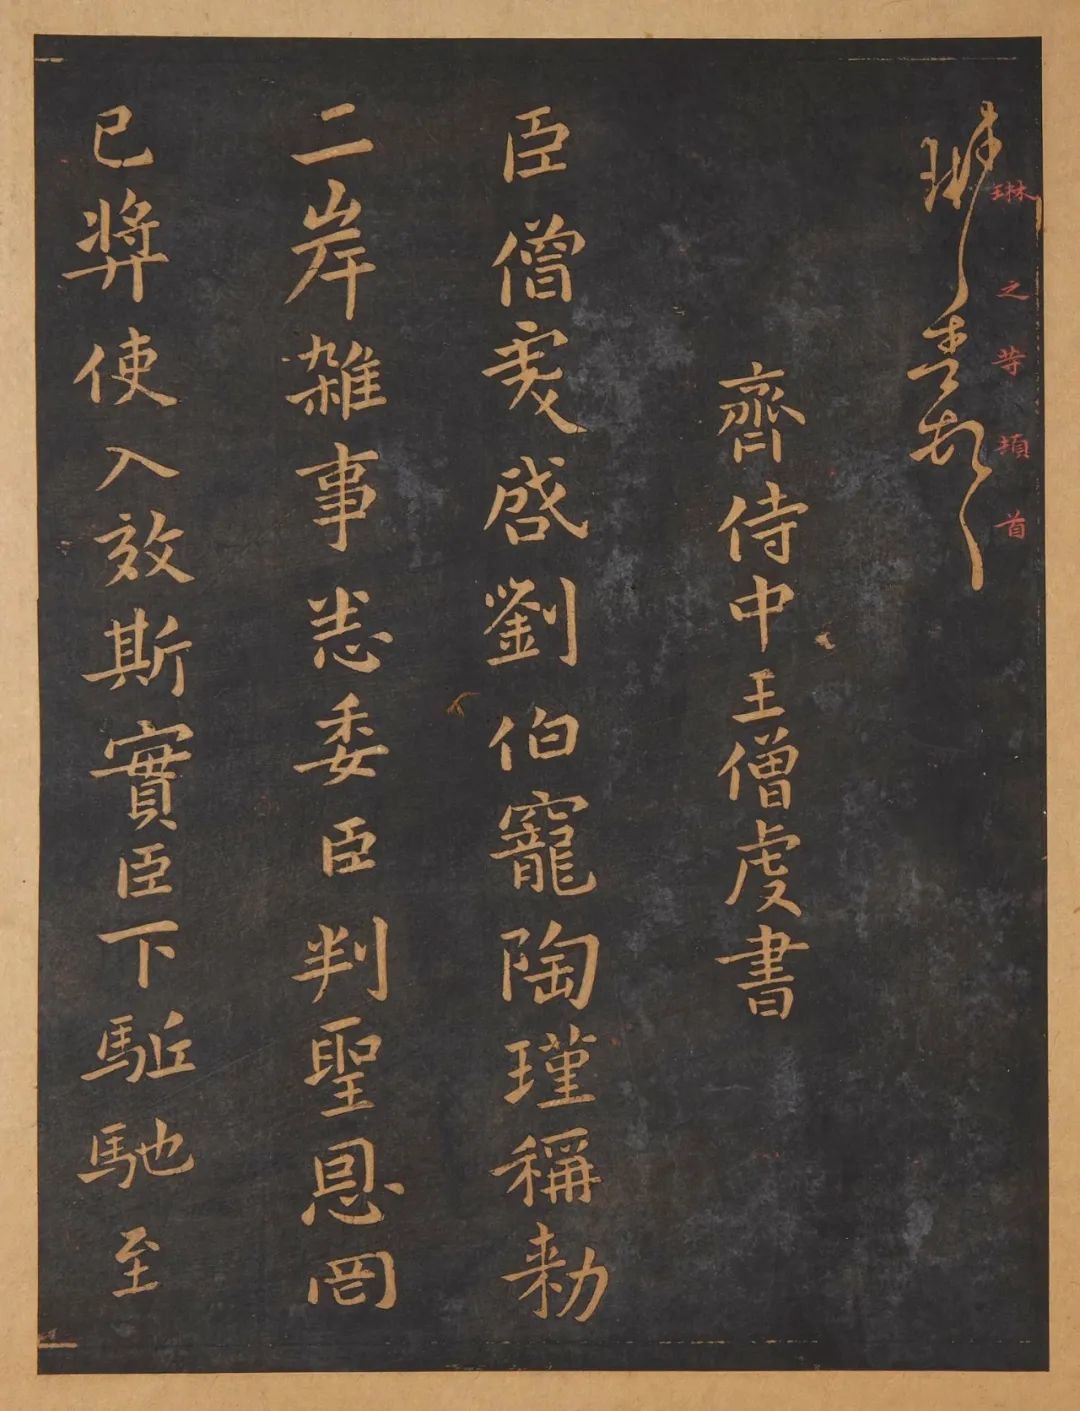 琳之等頓首
琳之等頓首
齊侍中王僧虔書
臣僧虔啓劉伯寵陶瑾稱勅
二岸雜事悉委臣判聖恩罔
已奬使入效斯實臣下駈馳至